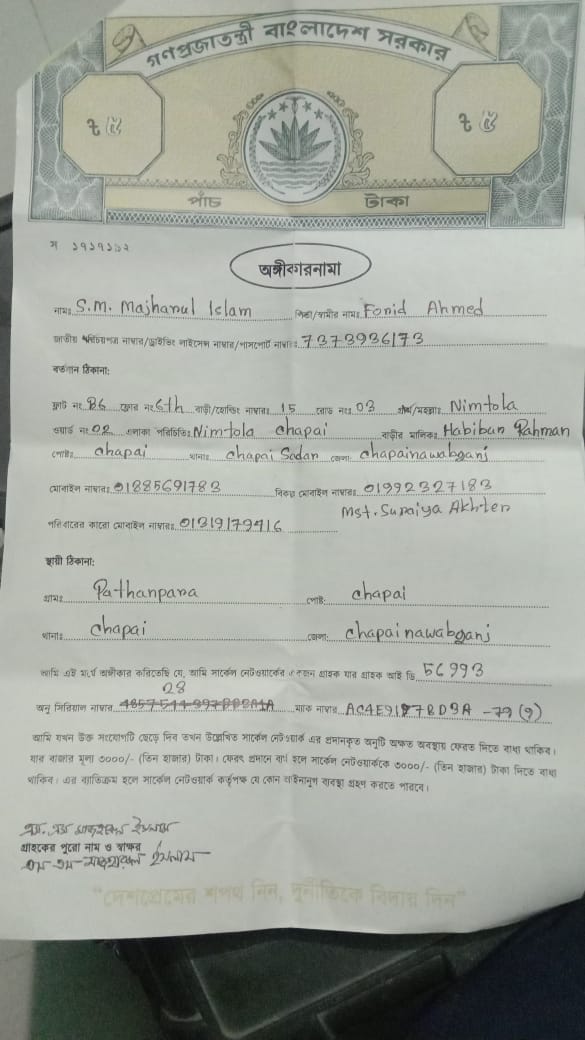 গণপ্রজাতন্ত্রী বাংলাদেশ সরকার
৳ ৫ ৳ ৫
পাঁচ টাকা
অঙ্গীকারনামা
নামঃ S.M. Majharul Islam পিতা/স্বামীর নামঃ Forid Ahmed
জাতীয় পরিচয়পত্র নাম্বার/ড্রাইভিং লাইসেন্স নাম্বার/পাসপোর্ট নাম্বারঃ 7373936173
বর্তমান ঠিকানা:
ফ্লাট নং B6 ফ্লোর নং 6th বাড়ী/হোল্ডিং নাম্বারঃ 15 রোড নংঃ 03 Nimtola
ওয়ার্ড নং 02 এলাকা পরিচিতিঃ Nimtola chapai বাড়ীর মালিকঃ Habibur Rahman
পোষ্টঃ chapai থানাঃ chapai Sadar জেলাঃ chapainawabganj
মোবাইল নাম্বারঃ 01885691783 বিকল্প মোবাইল নাম্বারঃ 01992327183
Mst. Suraiya Akhter
পরিবারের কারো মোবাইল নাম্বারঃ 01319179416
স্থায়ী ঠিকানা:
গ্রামঃ Pathanpara পোষ্টঃ chapai
থানাঃ chapai জেলাঃ chapainawabganj
আমি এই মর্মে অঙ্গীকার করিতেছি যে, আমি সার্কেল নেটওয়ার্কের একজন গ্রাহক যার গ্রাহক আই ডি 56993
28
অনু সিরিয়াল নাম্বার ম্যাক নাম্বার AC4E91 7BD9A -79 (9)
আমি যখন উক্ত সংযোগটি ছেড়ে দিব তখন উল্লেখিত সার্কেল নেটওয়ার্ক এর প্রদানকৃত অনুটি অক্ষত অবস্থায় ফেরত দিতে বাধ্য থাকিব।
যার বাজার মূল্য ৩০০০/- (তিন হাজার) টাকা। ফেরৎ প্রদানে ব্যর্থ হলে সার্কেল নেটওয়ার্ককে ৩০০০/- (তিন হাজার) টাকা দিতে বাধ্য
থাকিব। এর ব্যতিক্রম হলে সার্কেল নেটওয়ার্ক কর্তৃপক্ষ যে কোন আইনানুগ ব্যবস্থা গ্রহণ করতে পারবে।
ইসলাম
গ্রাহকের পুরো নাম ও স্বাক্ষর
ইসলাম
"দেশপ্রেমের শপথ নিন, দুর্নীতিকে বিদায় দিন"